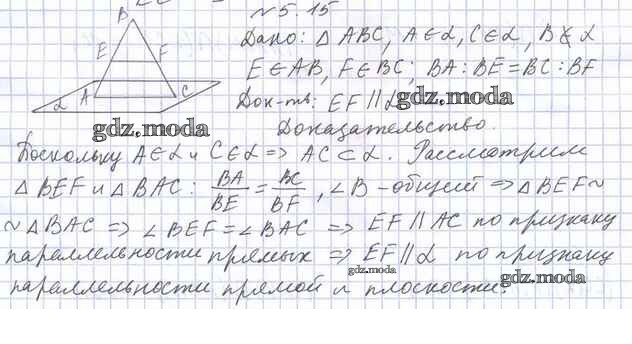 №5.15
Дано: △ABC, A∈α, C∈α, B∉α
E∈AB, F∈BC; BA:BE=BC:BF
Док-ть: EF∥α
gdz.moda
B
E
F
A
C
α
gdz.moda
Доказательство.
Поскольку A∈α и C∈α ⇒ AC⊂α. Рассмотрим
△BEF и △BAC: BA/BE = BC/BF, ∠B-общий ⇒ △BEF~
~△BAC ⇒ ∠BEF=∠BAC ⇒ EF∥AC по признаку
параллельности прямых ⇒ EF∥α по признаку
gdz.moda
gdz.moda
параллельности прямой и плоскости.